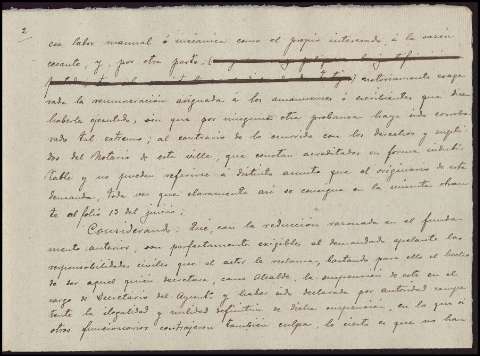 2
esa labor manual ó mecánica como el propio interesado, á la sazón
cesante, y, por otra parte,
notoriamente exage
rada la remuneración asignada á los amanuenses ó escribientes, que dice
haberla ejecutado, sin que por ninguna otra probanza haya sido corrobo
rado tal extremo; al contrario de lo ocurrido con los derechos y supli
dos del Notario de esta villa, que constan acreditados en forma indubi
table y no pueden referirse á distinto asunto que al originario de esta
demanda, toda vez que claramente así se consigna en la minuta obran
te al folio 13 del juicio.
Considerando: Que, con la reducción razonada en el funda
mento anterior, son perfectamente exigibles al demandado apelante las
responsabilidades civiles que el actor le reclama, bastando para ello el hecho
de ser aquel quien decretara, como Alcalde, la suspensión de este en el
cargo de Secretario del Ayuntº y haber sido declarada por autoridad compe
tente la ilegalidad y nulidad definitiva de dicha suspensión, en la que si
otros funcionarios contrajeron también culpa, lo cierto es que no han